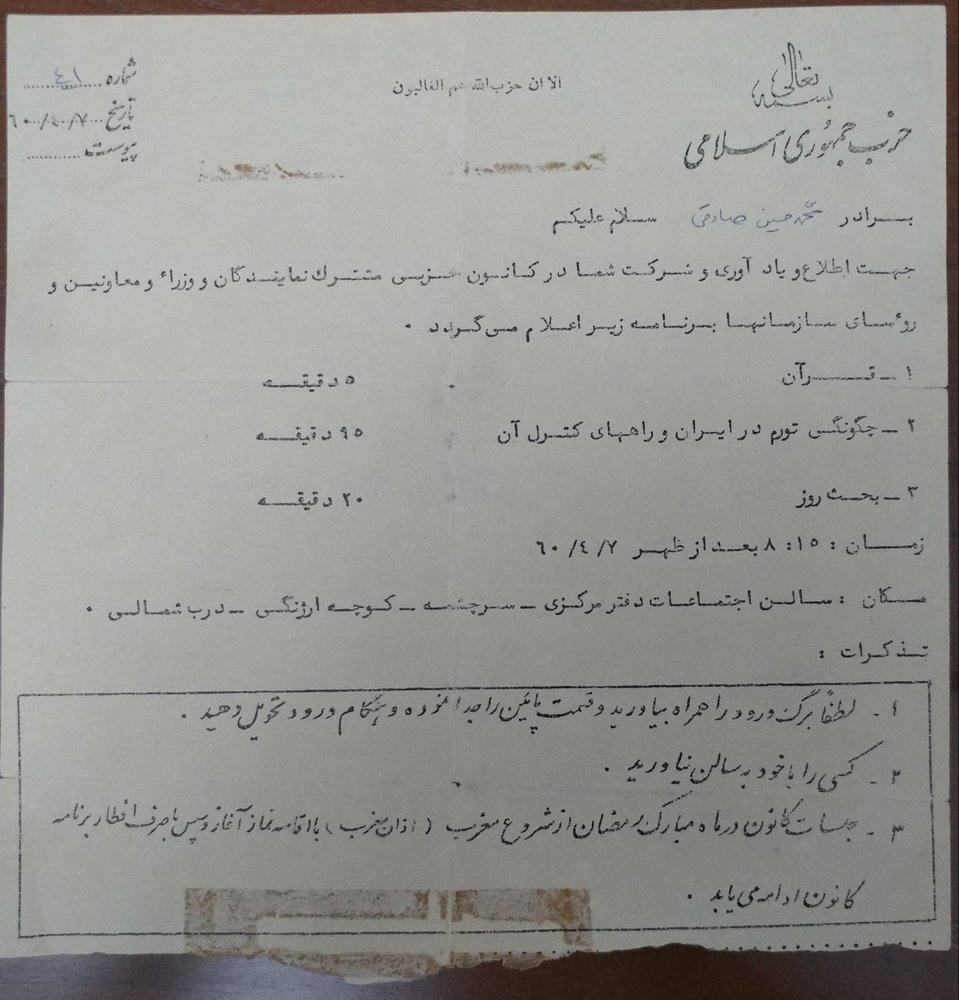 بسمه تعالی
حزب جمهوری اسلامی
الا ان حزب‌الله هم الغالبون
شماره ..... ٤١
تاریخ ٦٠/٤/٧
پیوست ............
برادر محمد حسین صادقی سلام علیکم
جهت اطلاع و یاد آوری و شرکت شما در کانون حزبی مشترك نمایندگان و وزراء و معاونین و
روءسای سازمانها برنامه زیر اعلام می‌گردد ۰
۱ ـ قرآن ۵ دقیقه
۲ ـ چگونگی تورم در ایران و راههای کنترل آن ۹۵ دقیقه
۳ ـ بحث روز ۲۰ دقیقه
زمان : ۸:۱۵ بعد از ظهر ٦٠/٤/٧
مکان : سالن اجتماعات دفتر مرکزی ـ سرچشمه ـ کوچه ارژنگی ـ درب شمالی ۰
تذکرات :
۱ - لطفاً برگ ورود را همراه بیاورید و قسمت پائین را جدا نموده و هنگام ورود تحویل دهید .
۲ - کسی را با خود به سالن نیاورید .
۳ - جلسات کانون در ماه مبارک رمضان از شروع مغرب ( اذان مغرب ) با اقامه نماز آغاز و سپس با صرف افطار برنامه
کانون ادامه می یابد .